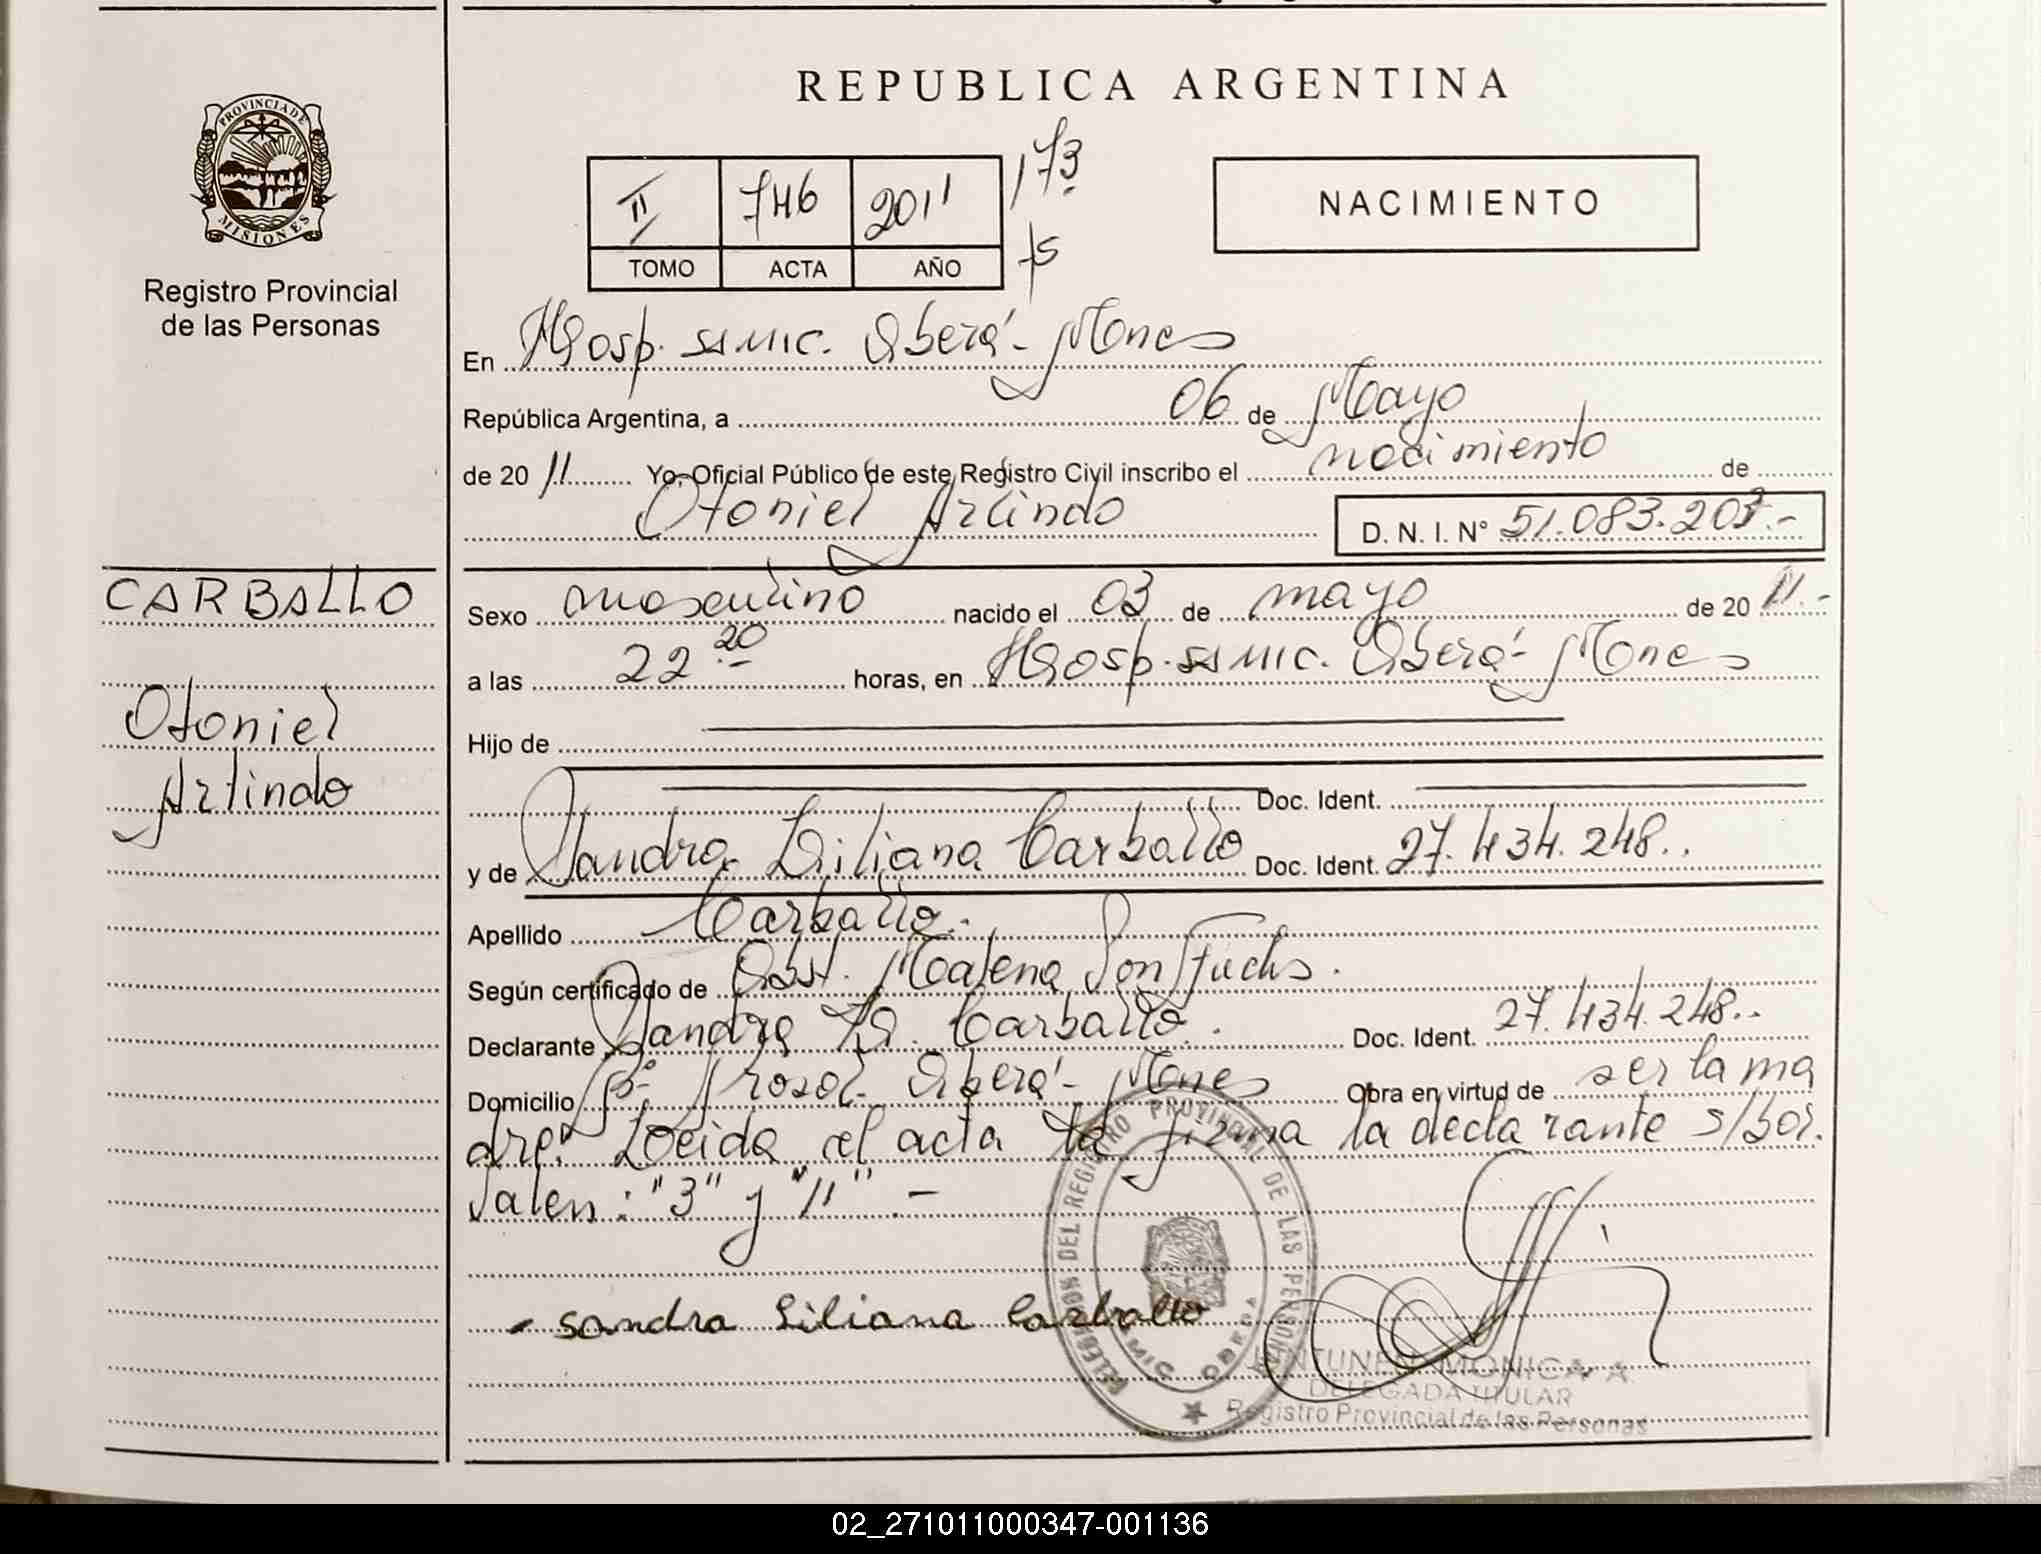 REPUBLICA ARGENTINA
PROVINCIA DE MISIONES
Registro Provincial
de las Personas
II 746 2011 173
TOMO ACTA AÑO
fs
NACIMIENTO
En Hosp. ssmic. Oberá - Mones
República Argentina, a 06 de Mayo
de 20 11 Yo, Oficial Público de este Registro Civil inscribo el nacimiento de
Otoniel Arlindo D. N. I. N° 51.083.203.-
CARBALLO
Otoniel
Arlindo
Sexo masculino nacido el 03 de mayo de 20 11.-
a las 22 20 horas, en Hosp. ssmic. Oberá - Mones
Hijo de
Doc. Ident.
y de Sandra Liliana Carballo Doc. Ident. 27.434.248..
Apellido Carballo.
Según certificado de Obst. Malena
Declarante Sandra L. Carballo. Doc. Ident. 27.434.248..
Domicilio Bº Krosol - Oberá - Mones Obra en virtud de ser la ma
dre. Leida el acta la firma la declarante s/bor.
Valen: "3" y "11" . -
- Sandra Liliana Carballo
DELEGACION DEL REGISTRO PROVINCIAL DE LAS PERSONAS
MONICA A.
DELEGADA TITULAR
Registro Provincial de las Personas
02_271011000347-001136